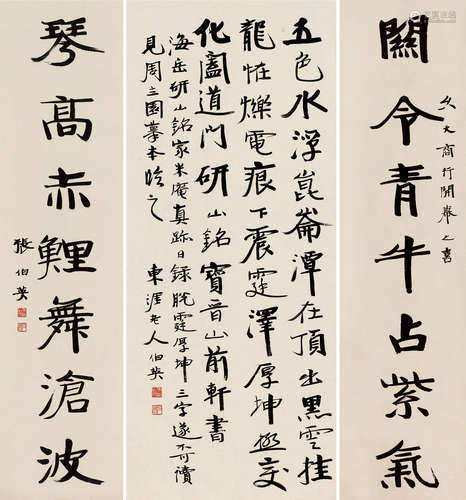 關令青牛占紫氣
久大商行開幕之喜
五色水浮崑崙潭在頂出黑雲挂
龍恠爍電痕下震霆澤厚坤極交
化闔道門研山銘寶晉山前軒書
海岳研山銘家米庵真跡日録脫霆厚坤三字遂不可讀
見周園摹本臨之
東涯老人伯英
琴髙赤鯉舞滄波
張伯英